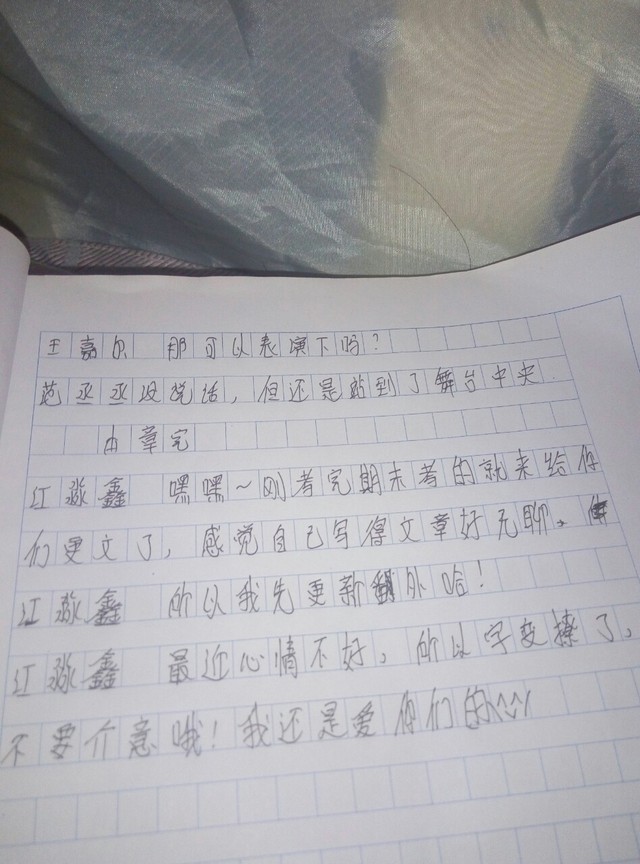 王嘉尔 那可以表演下吗?
范丞丞没说话,但还是站到了舞台中央
本章完
江淼鑫 嘿嘿~刚考完期末考的就来给你
们更文了,感觉自己写得文章好无聊、
江淼鑫 所以我先更新翻外哈!
江淼鑫 最近心情不好,所以字变捞了,
不要介意哦!我还是爱你们的^^